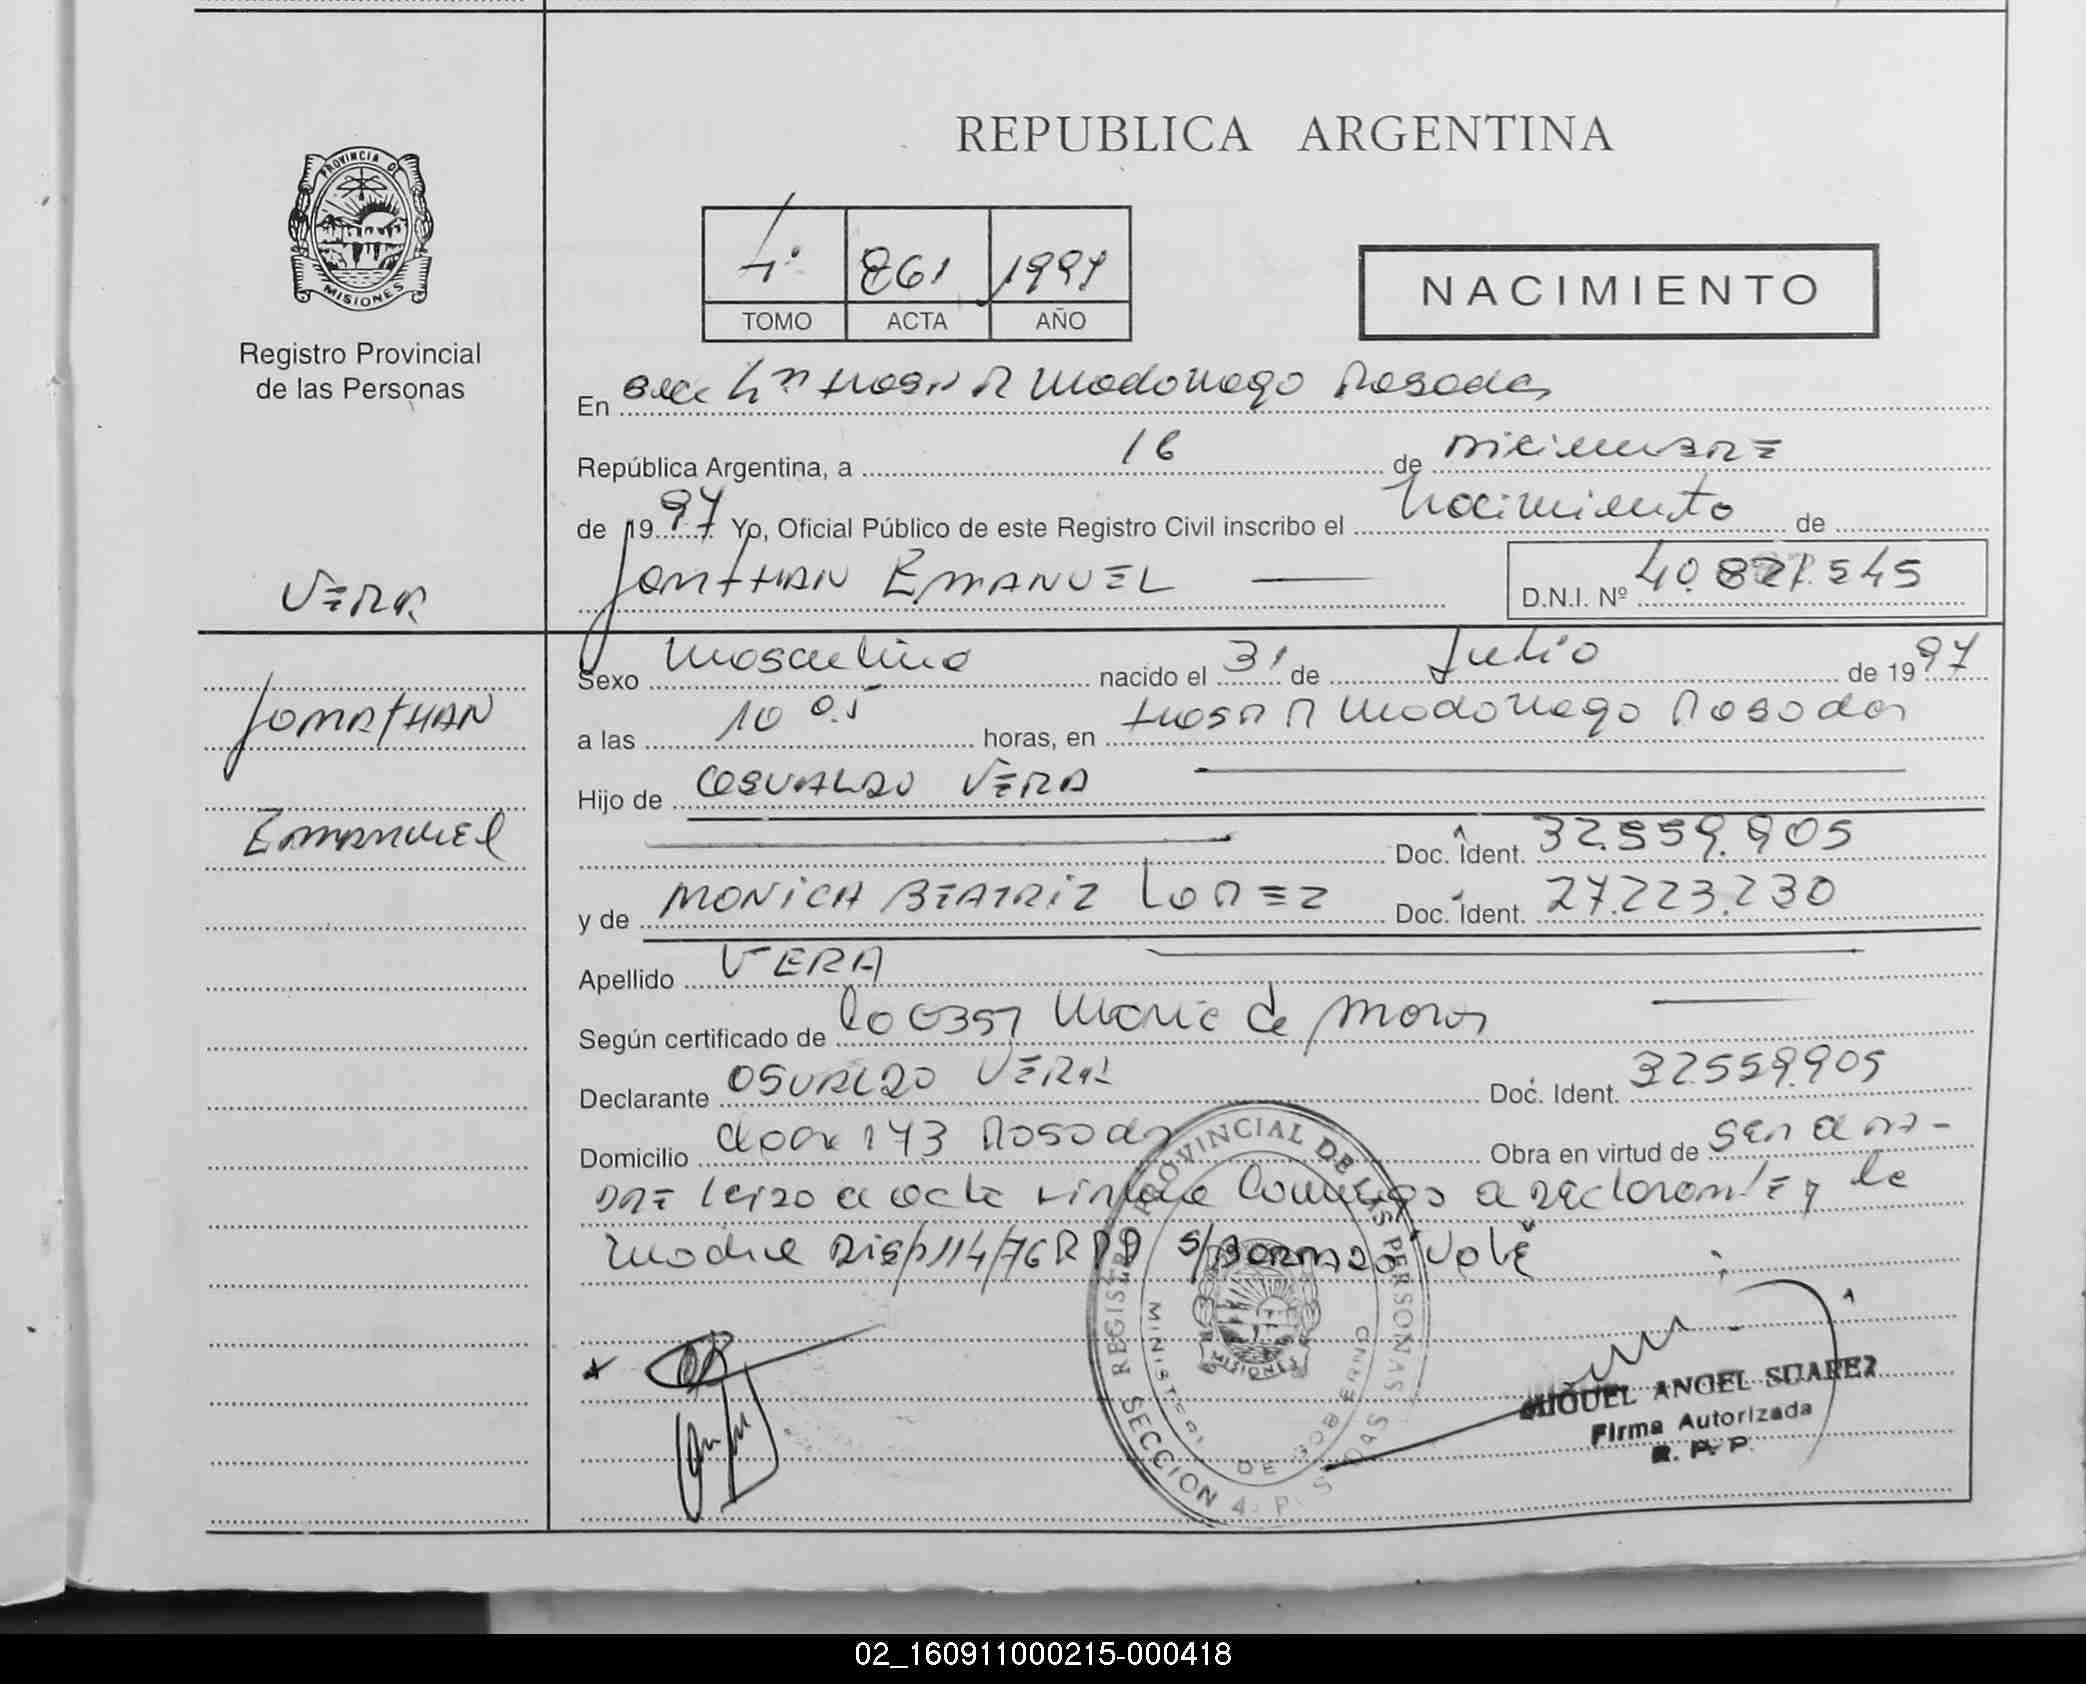 REPUBLICA ARGENTINA
PROVINCIA DE
MISIONES
Registro Provincial
de las Personas
4º 861 1997
TOMO ACTA AÑO
NACIMIENTO
En Secc 4ta Hosp R Madariaga Posadas
República Argentina, a 16 de Diciembre
de 1997 Yo, Oficial Público de este Registro Civil inscribo el Nacimiento de
JONATHAN EMANUEL
D.N.I. Nº 40.827.545
VERA
JONATHAN
EMANUEL
Sexo Masculino nacido el 31 de Julio de 1997
a las 10 05 horas, en Hosp R Madariaga Posadas
Hijo de OSVALDO VERA
Doc. Ident. 32.559.905
y de MONICA BEATRIZ LOPEZ Doc. Ident. 27.223.230
Apellido VERA
Según certificado de Maria de
Declarante OSVALDO VERA Doc. Ident. 32559905
Domicilio 143 Posadas Obra en virtud de ser el pa-
dre leido el acta firma conmigo el declarante y la
madre Disp 114/76 RPP s/borrado vale
REGISTRO PROVINCIAL DE LAS PERSONAS
MINISTERIO DE GOBIERNO
MISIONES
SECCION 4. POSADAS
MIGUEL ANGEL SUAREZ
Firma Autorizada
R. P. P.
02_160911000215-000418